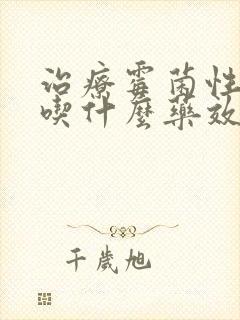 治療霉菌性
喫什麼藥效
千歲旭